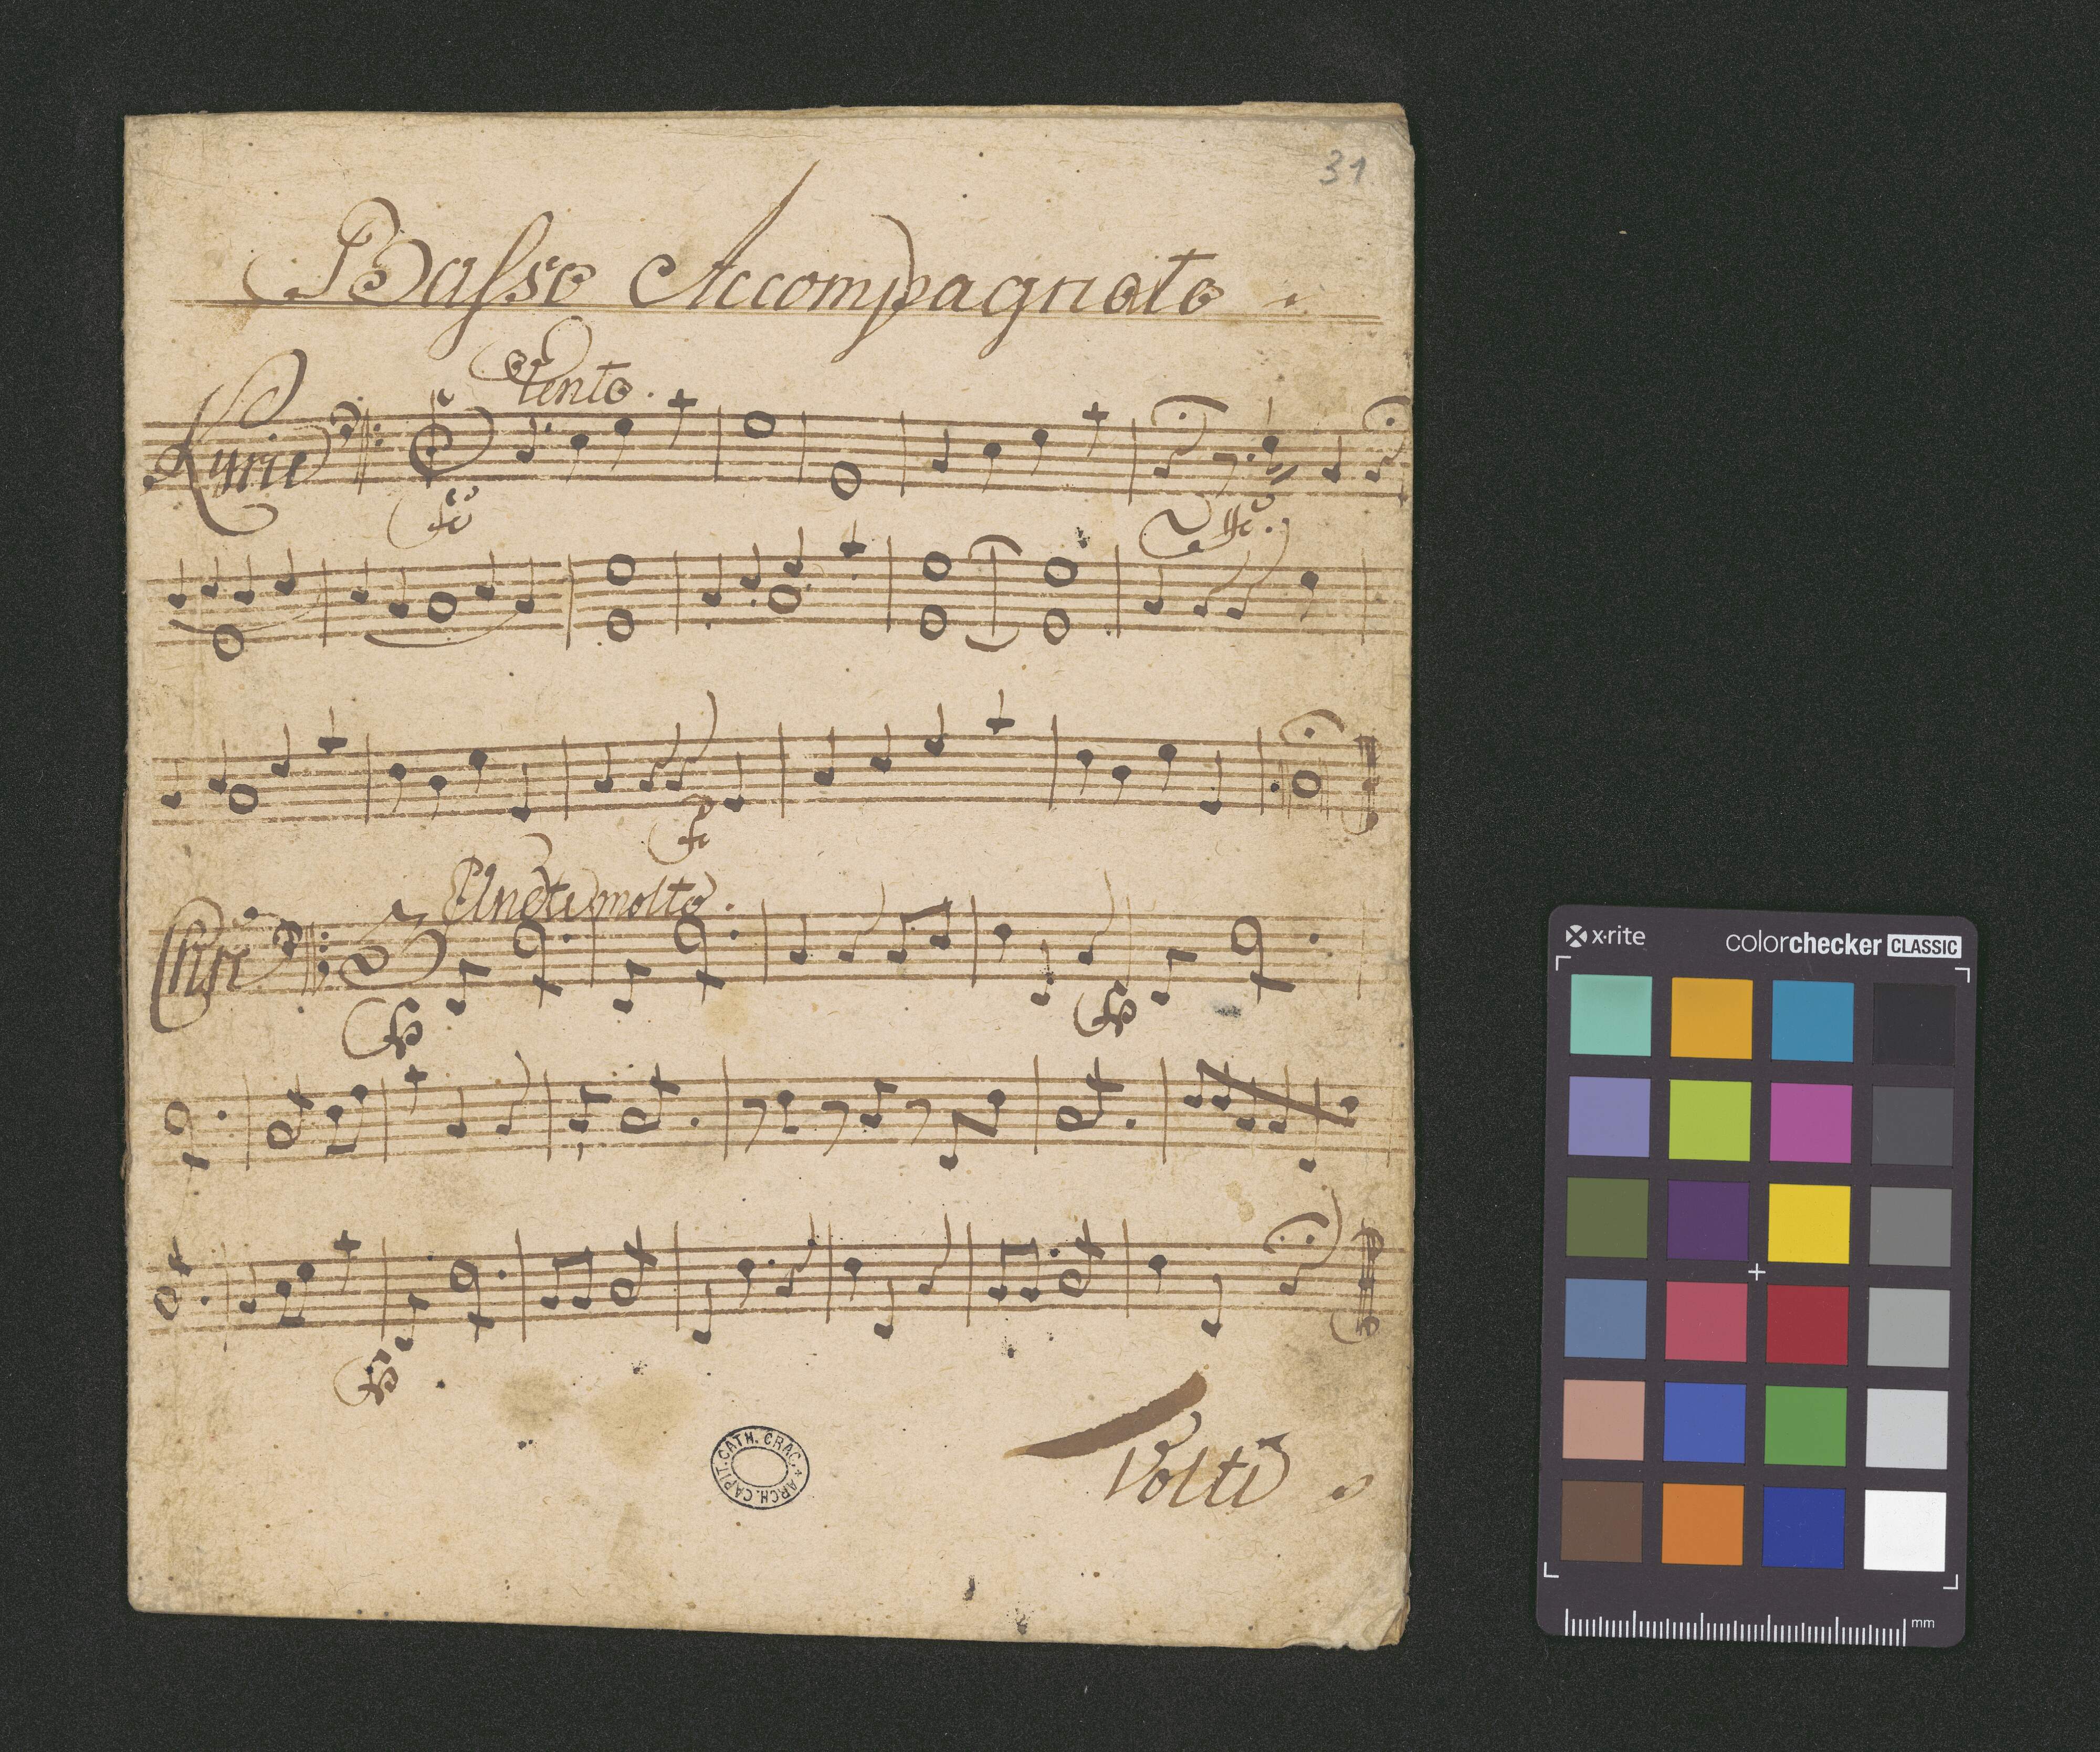 31
Basso Accompagnato
Lento.
Kyrie
Chste
molto.
Volti
ARCH. CAPIT. CATH. CRAC.
x-rite
colorchecker CLASSIC
mm